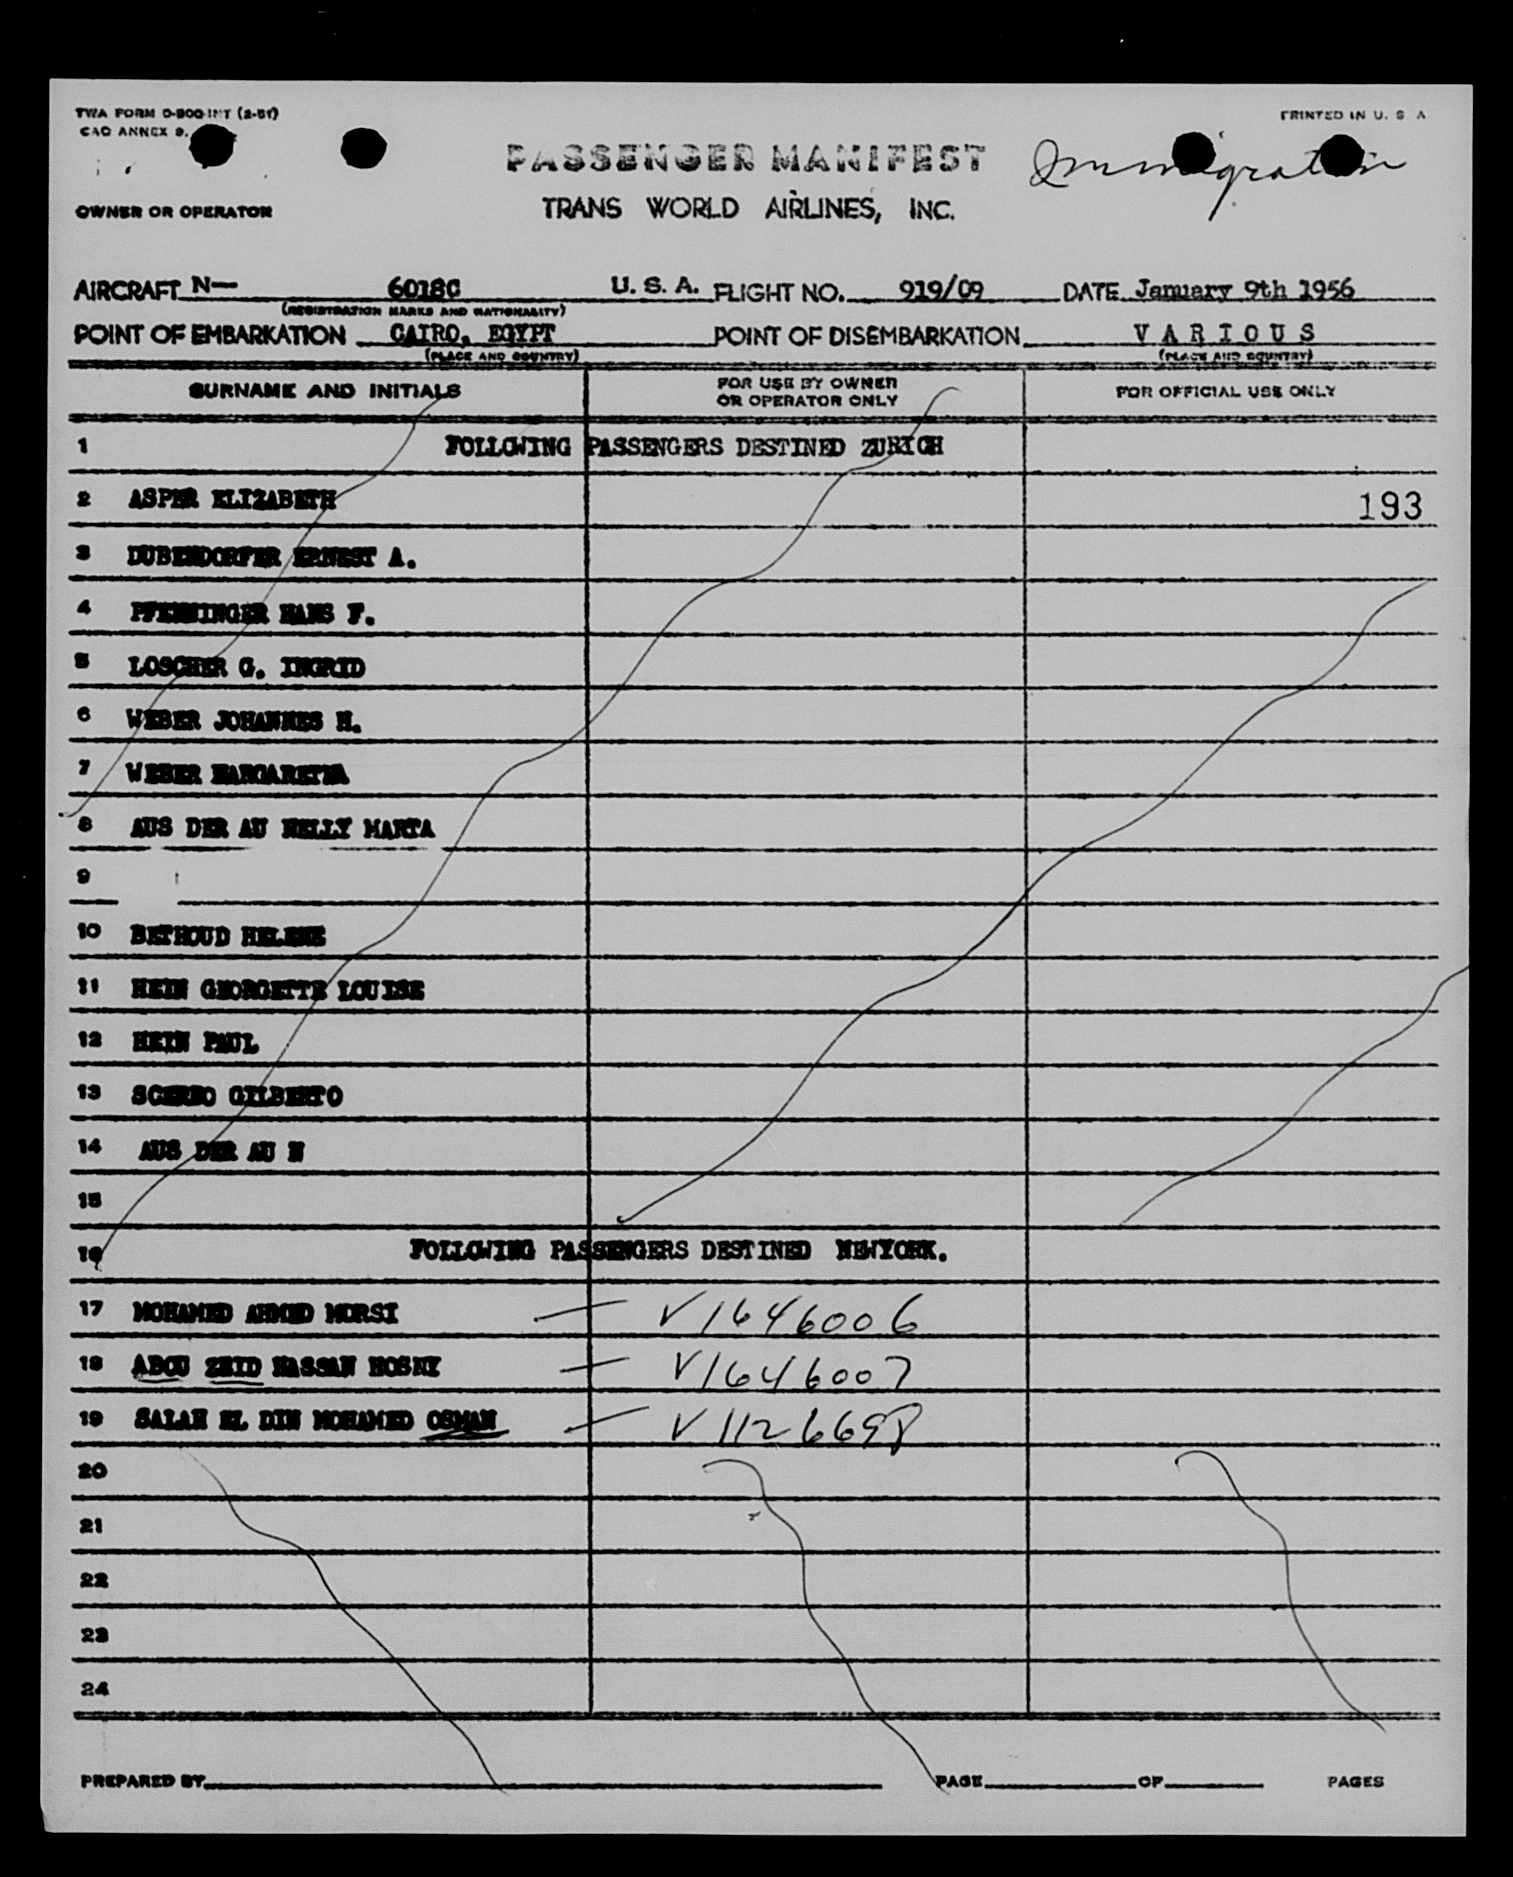 TWA FORM O-800-INT (2-51)
CAO ANNEX 9.
PRINTED IN U. S A
PASSENGER MANIFEST
Immigration
OWNER OR OPERATOR
TRANS WORLD AIRLINES, INC.
AIRCRAFT N— 6018C U. S. A. FLIGHT NO. 919/09 DATE January 9th 1956
(REGISTRATION MARKS AND NATIONALITY)
POINT OF EMBARKATION CAIRO, EGYPT POINT OF DISEMBARKATION V A R I O U S
(PLACE AND COUNTRY) (PLACE AND COUNTRY)
SURNAME AND INITIALS FOR USE BY OWNER OR OPERATOR ONLY FOR OFFICIAL USE ONLY
1 FOLLOWING PASSENGERS DESTINED ZURICH
2 ASPER ELIZABETH 193
3 DUBENDORFER ERNEST A.
4 PFENNINGER HANS F.
5 LOSCHER G. INGRID
6 WEBER JOHANNES H.
7 WEBER MARGARETHA
8 AUS DER AU NELLY MARTA
9
10 BETHOUD HELENE
11 HEIN GEORGETTE LOUISE
12 HEIN PAUL
13 GILBERTO
14 AUS DER AU N
15
16 FOLLOWING PASSENGERS DESTINED NEWYORK.
17 MOHAMED AHMED MORSI — V1646006
18 ABOU ZEID HASSAN HOSNY — V1646007
19 SALAH EL DIN MOHAMED OSMAN — V1126698
20
21
22
23
24
PREPARED BY PAGE OF PAGES